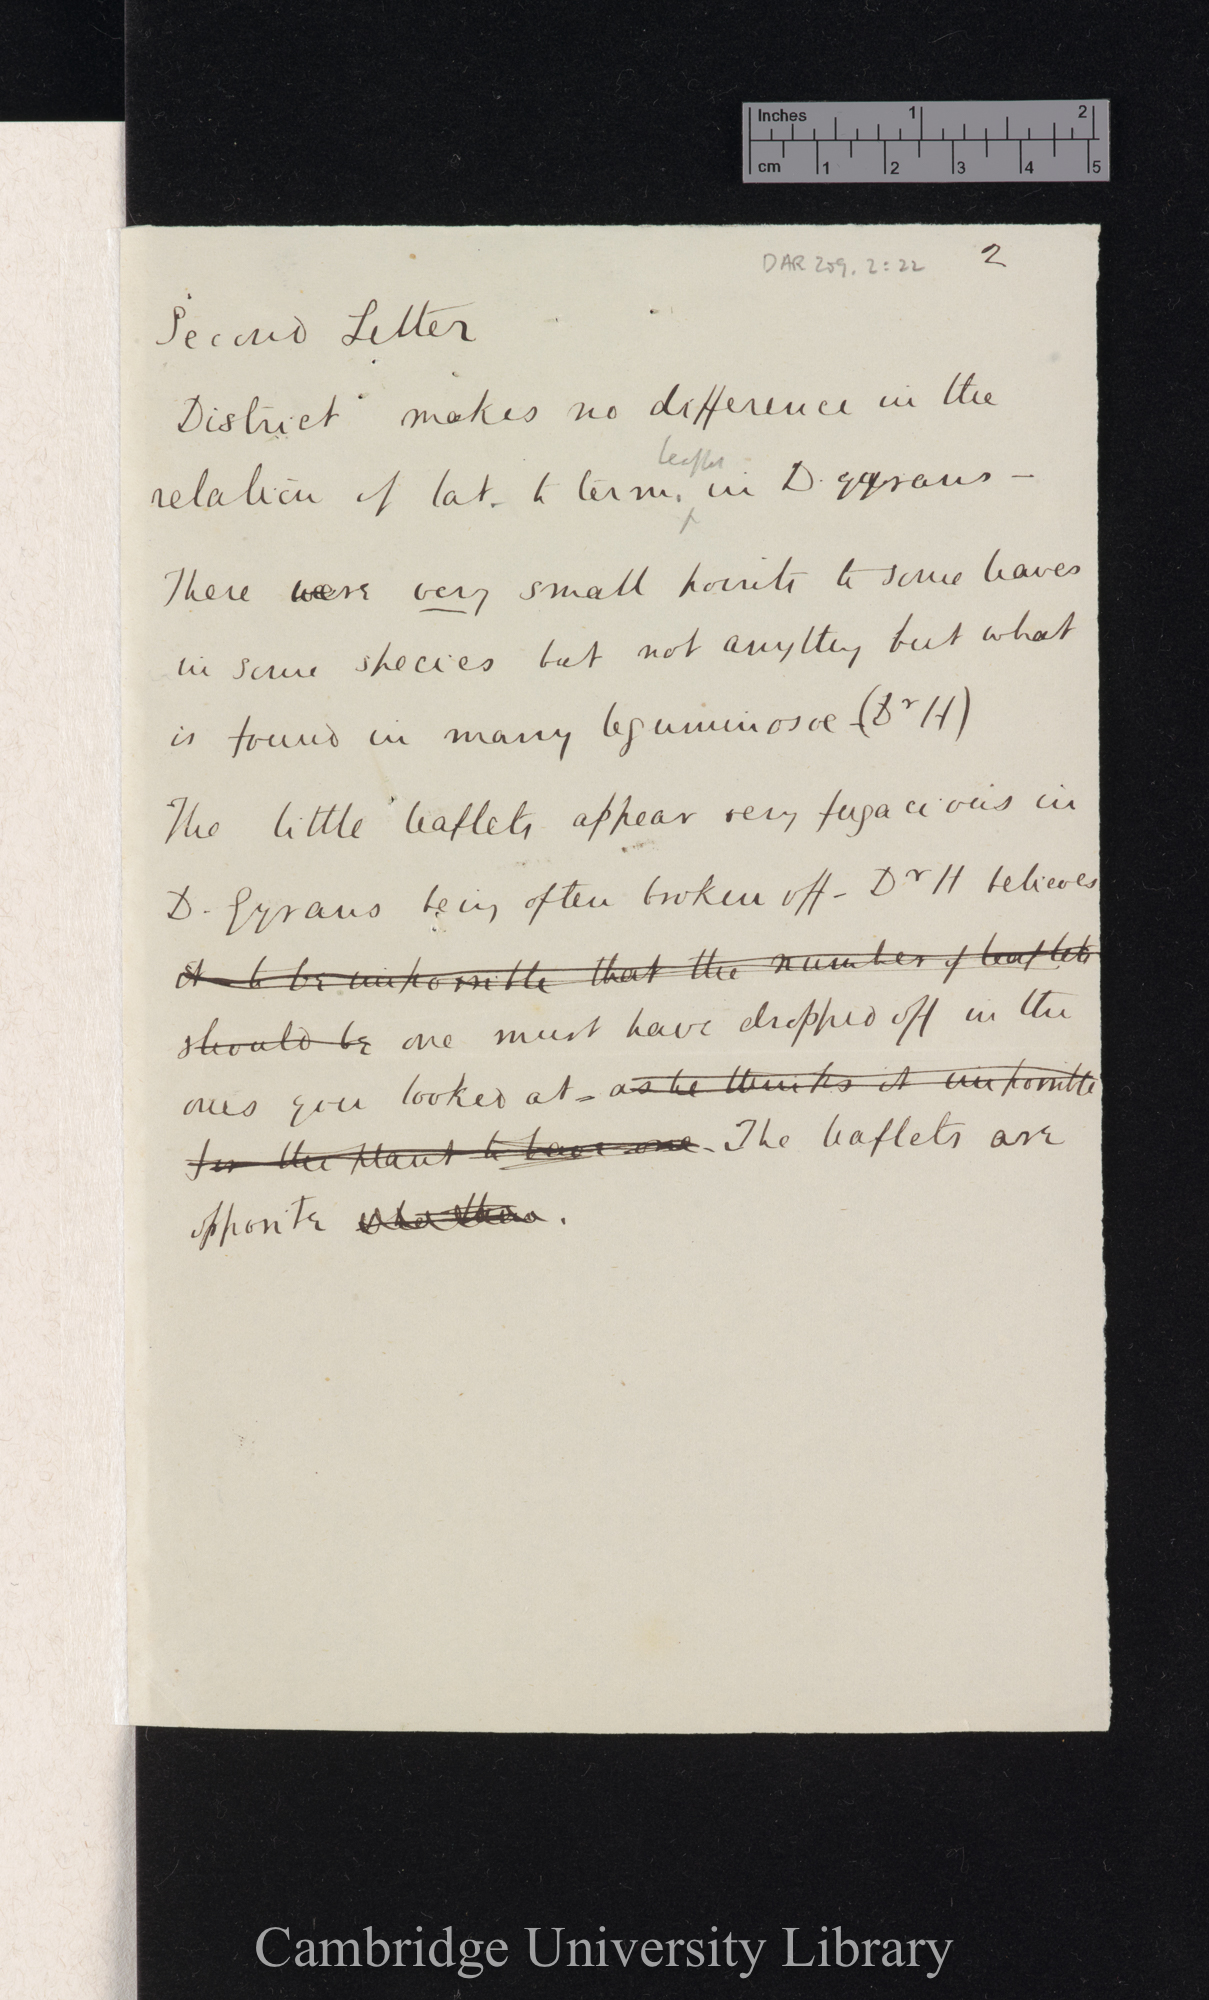 Inches 1 2
cm 1 2 3 4 5
DAR 209. 2: 22 2
Second Letter
District makes no difference in the
leaflet
relation of lat. to term. in D. gyrans –
There were very small points to some leaves
in some species but not anything but what
is found in many leguminosæ – (Dr H)
The little leaflets appear very fugacious in
D. Gyrans being often broken off – Dr H believes
it to be impossible that the number of leaflets
should be one must have dropped off in the
ones you looked at – as he thinks it impossible
for the plant to have one. The leaflets are
opposite .
Cambridge University Library